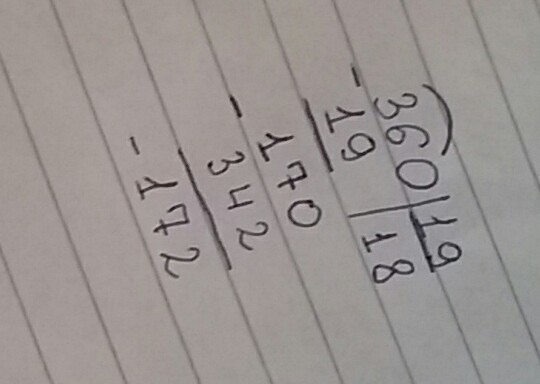 360 | 19
-19 | 18
170
- 342
-172